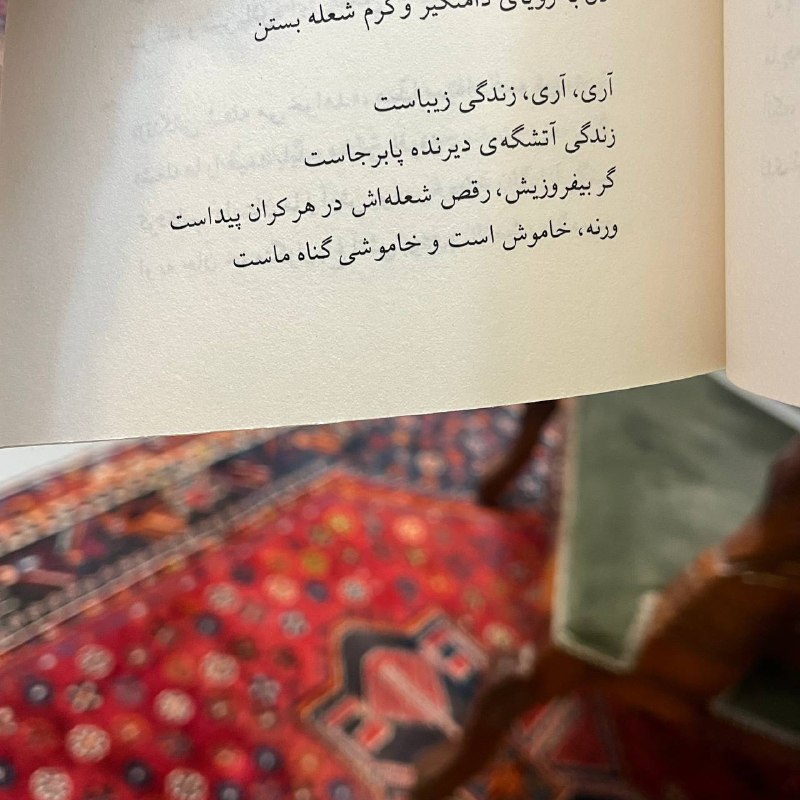 رویای دامنگیر و گرم شعله بستن
آری، آری، زندگی زیباست
زندگی آتشگه‌ی دیرنده پابرجاست
گر بیفروزیش، رقص شعله‌اش در هر کران پیداست
ورنه، خاموش است و خاموشی گناه ماست